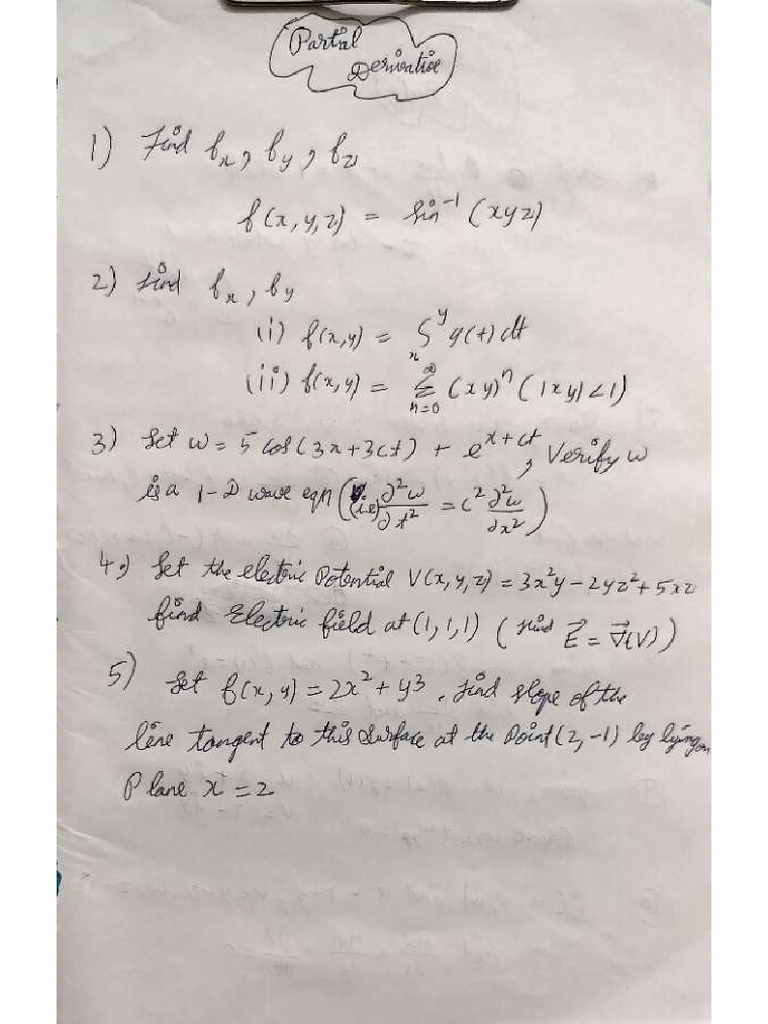 Partial
Derivative
1) Find fx, fy, fz
f(x,y,z) = sin⁻¹(xyz)
2) find fx, fy
(i) f(x,y) = ∫ₓʸ g(t) dt
(ii) f(x,y) = Σₙ₌₀^∞ (xy)ⁿ (|xy|<1)
3) Let w = 5 cos(3x+3ct) + e^(x+ct), Verify w
is a 1-D wave eqn ((i.e) ∂²w/∂t² = c² ∂²w/∂x²)
4.) Let the electric Potential V(x,y,z) = 3x²y - 2yz² + 5xz
find Electric field at (1,1,1) (find E⃗ = ∇⃗(V))
5) Let f(x,y) = 2x² + y3. find slope of the
line tangent to this surface at the point (2,-1) lying on
Plane x = 2